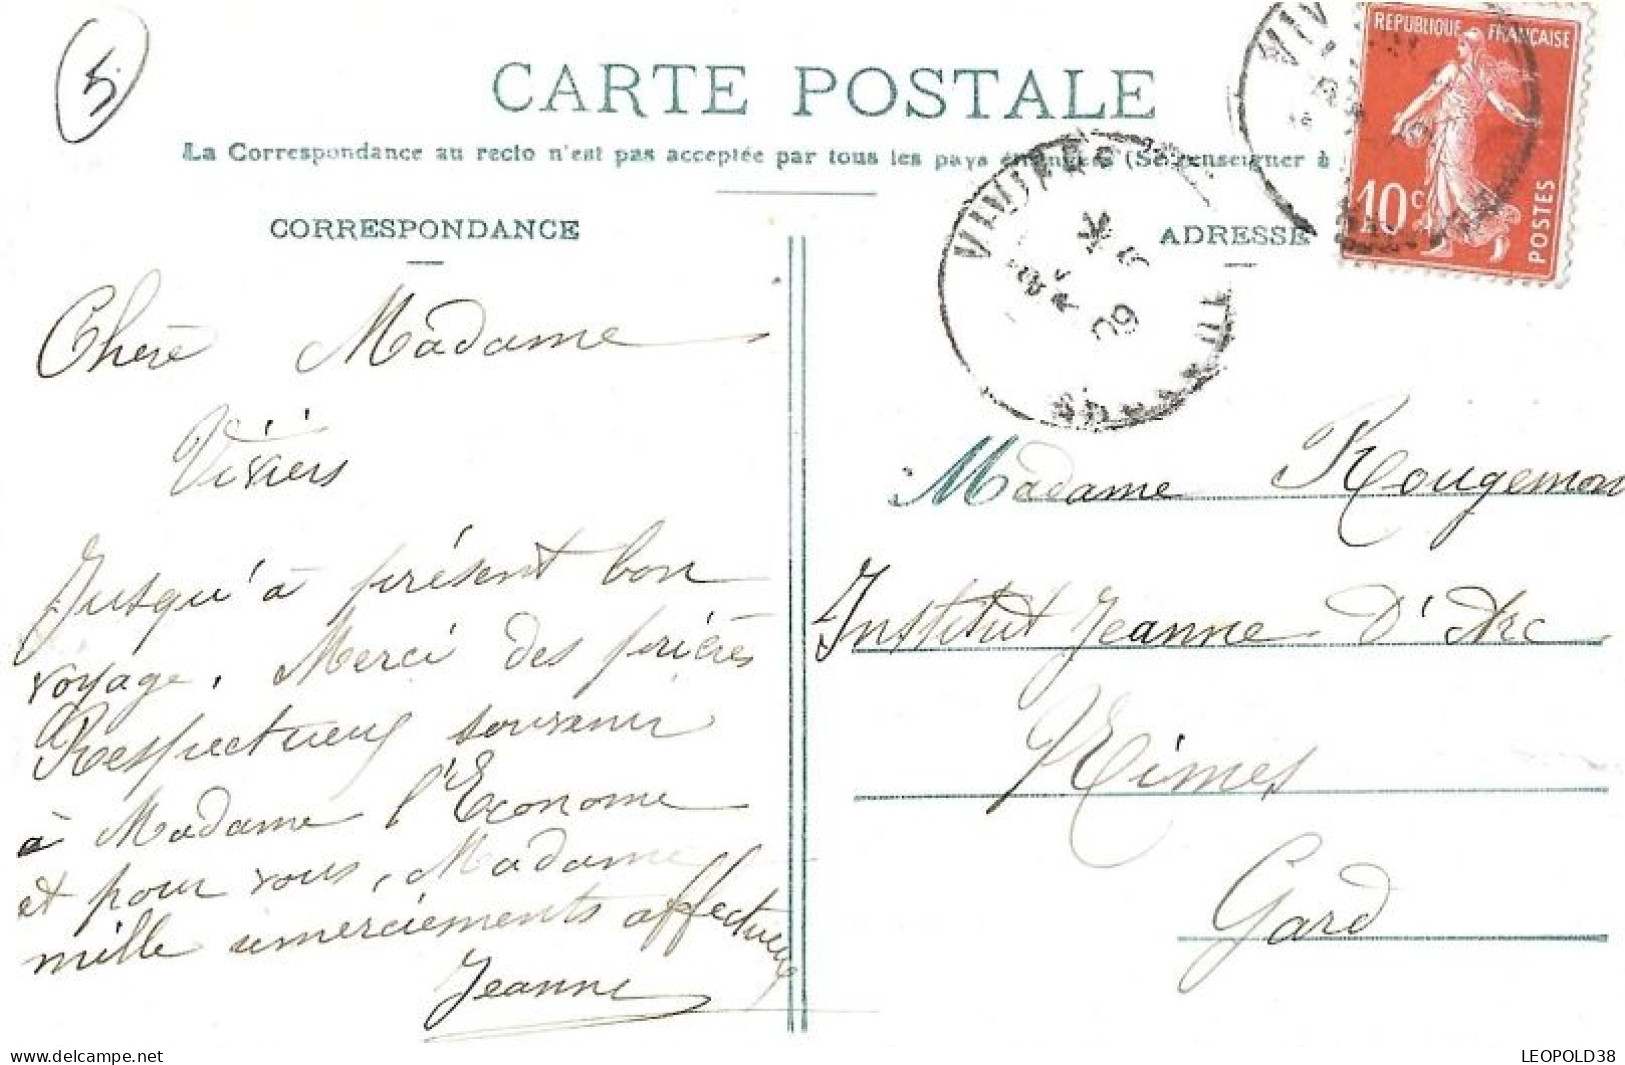 5
CARTE POSTALE
La Correspondance au recto n'est pas acceptée par tous les pays étrangers (Se renseigner à
CORRESPONDANCE
ADRESSE
REPUBLIQUE FRANÇAISE
10c
POSTES
VIVIERS
09
Chère Madame
Viviers
Jusqu'à présent bon
voyage. Merci des prières
Respectueux souvenir
à Madame l'Econome
et pour vous, Madame
mille remerciements affectueux
Jeanne
Madame Rougemon
Institut Jeanne D'Arc
Nimes
Gard
www.delcampe.net
LEOPOLD38